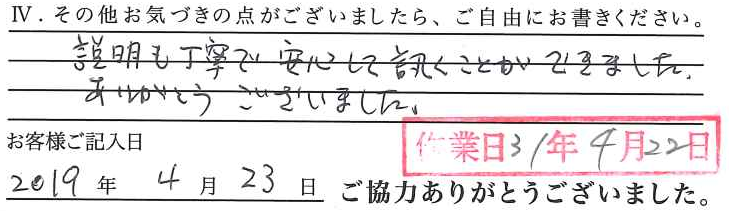 Ⅳ．その他お気づきの点がございましたら、ご自由にお書きください。
説明も丁寧で安心して訊くことができました。
ありがとうございました。
お客様ご記入日
作業日31年4月22日
2019年 4月 23日 ご協力ありがとうございました。